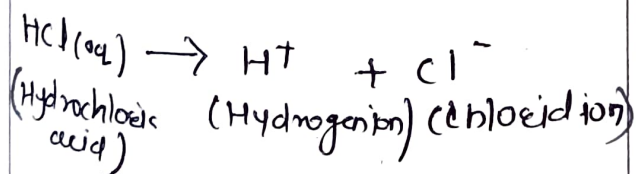 HCl(aq) → H+ + Cl-
(Hydrochloric (Hydrogenion) (chloridion)
acid)